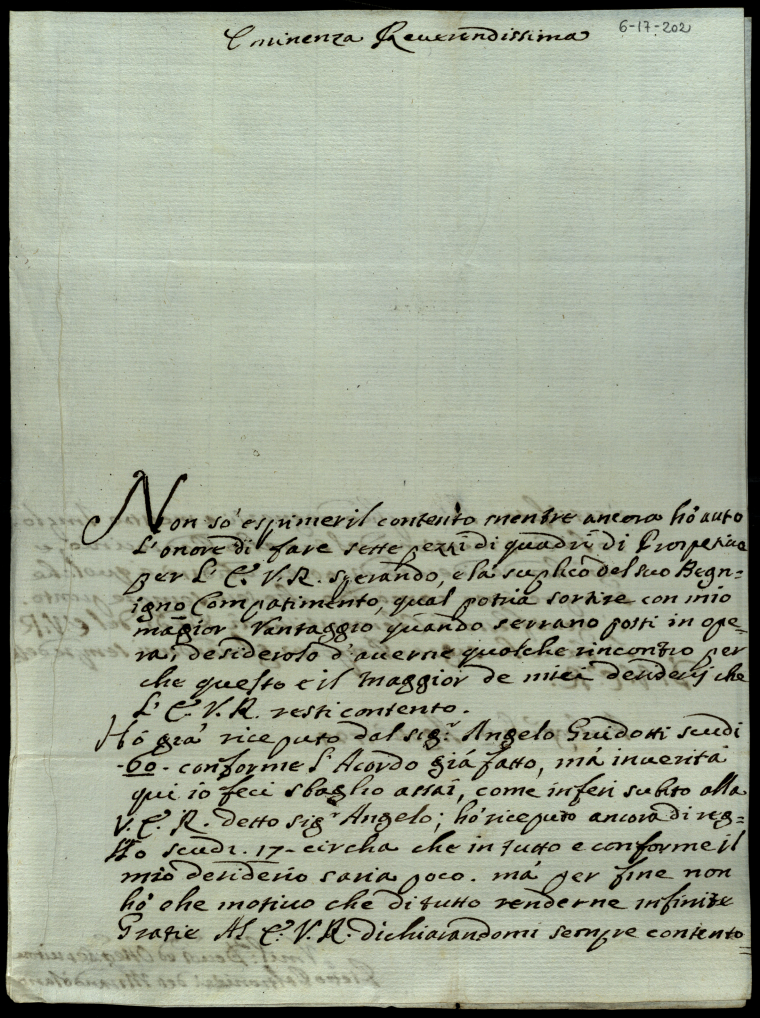 Eminenza Reuerendissima
6-17-202
Non so' esprimer il contento mentre ancora hò auto
L'onore di fare sette pezzi di quadri di Prospetiua
per L' E. V. R. sperando, e la suplico del suo Begn=
igno Compatimento, qual potria sortire con mio
maggior Vantaggio quando serrano posti in ope=
ra; desideroso d'auerne qualche rincontro per
che questo e il maggior de miei deriderij che
L' E. V. R. resti contento.
Hò gia' riceputo dal sig.r Angelo Guidotti scudi
-60- conforme L'Acordo giá fatto, má inuerita
qui io feci sbaglio assai, come inferi subito alla
V. E. R. detto sig.r Angelo; hó riceputo ancora di reg=
llo scudi. 17- circha che in tutto e conforme il
mio deriderio saria poco. má per fine non
hó che motiuo che di tutto renderne infinite
Gratie Al E. V. R. dichiarandomi sempre contento